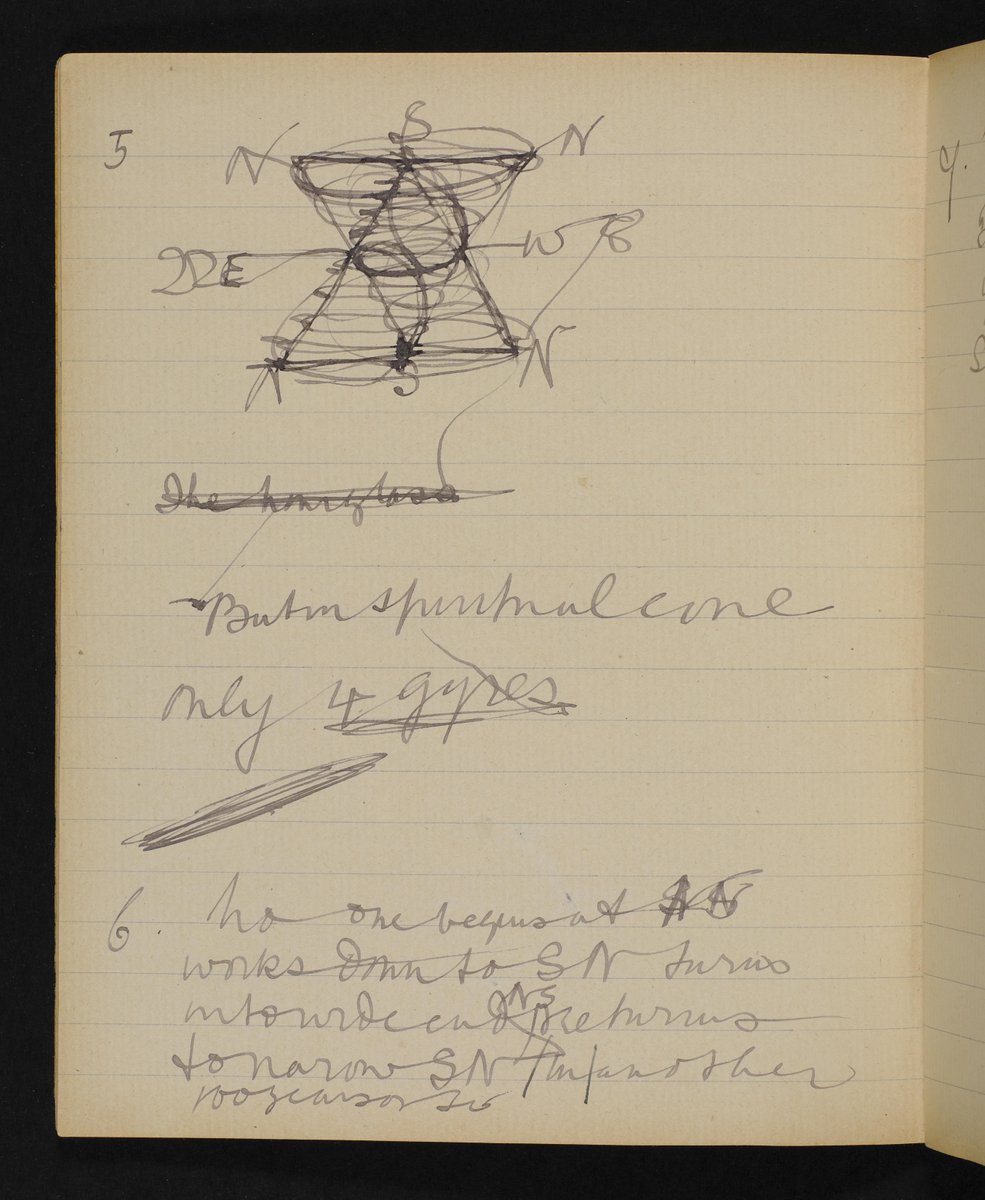 5
S
N N
E W E
N S N
The hourglass
But in spiritual cone
only 4 gyres
6. No one begins at N
works down to SN turns
NS
into wide end returns
to narrow SN in another
100 years or so